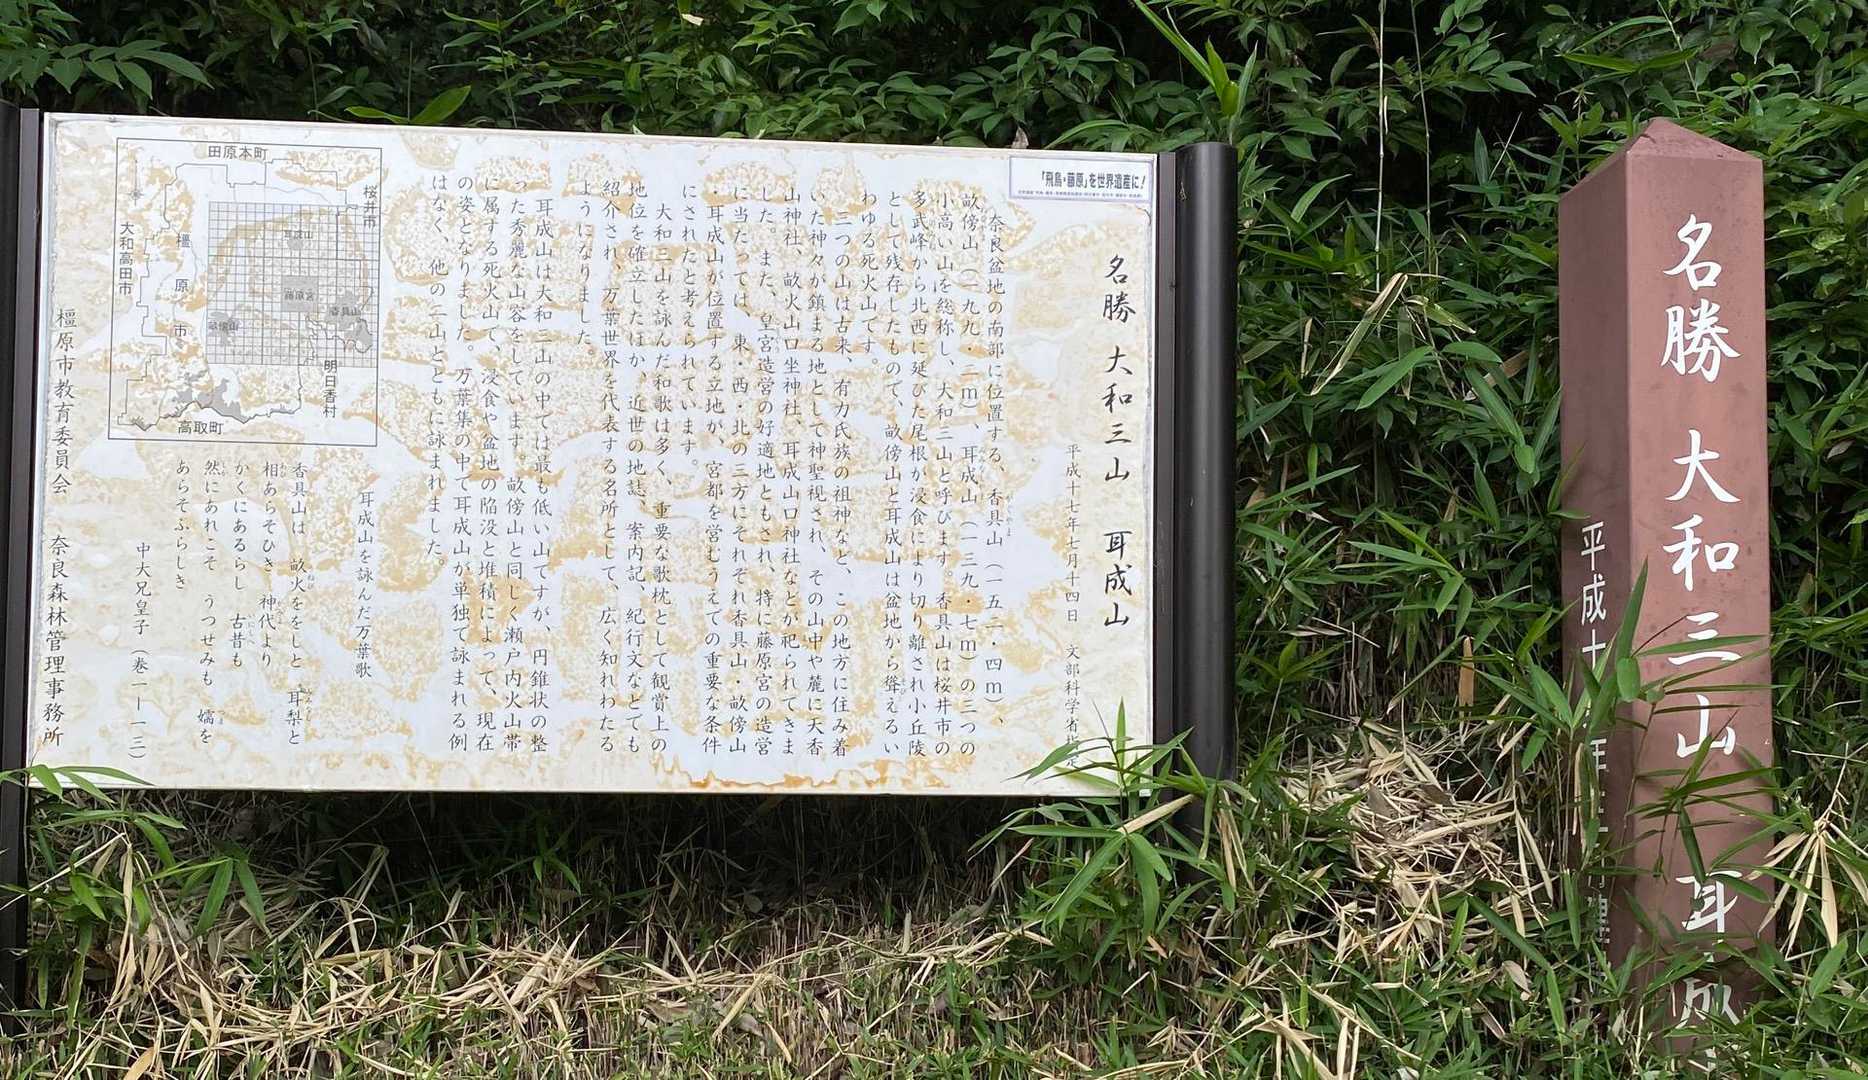 「飛鳥・藤原」を世界遺産に!
名勝 大和三山 耳成山
平成十七年七月十四日 文部科学省指定
奈良盆地の南部に位置する、香具山(一五二・四m)、
畝傍山(一九九・二m)、耳成山(一三九・七m)の三つの
小高い山を総称し、大和三山と呼びます。香具山は桜井市の
多武峰から北西に延びた尾根が浸食により切り離され小丘陵
として残存したもので、畝傍山と耳成山は盆地から聳えるい
わゆる死火山です。
三つの山は古来、有力氏族の祖神など、この地方に住み着
いた神々が鎮まる地として神聖視され、その山中や麓に天香
山神社、畝火山口坐神社、耳成山口神社などが祀られてきま
した。また、皇宮造営の好適地ともされ、特に藤原宮の造営
に当たっては、東・西・北の三方にそれぞれ香具山・畝傍山
・耳成山が位置する立地が、宮都を営むうえでの重要な条件
にされたと考えられています。
大和三山を詠んだ和歌は多く、重要な歌枕として観賞上の
地位を確立したほか、近世の地誌、案内記、紀行文などでも
紹介され、万葉世界を代表する名所として、広く知れわたる
ようになりました。
耳成山は大和三山の中では最も低い山ですが、円錐状の整
った秀麗な山容をしています。畝傍山と同じく瀬戸内火山帯
に属する死火山で、浸食や盆地の陥没と堆積によって、現在
の姿となりました。万葉集の中で耳成山が単独で詠まれる例
はなく、他の二山とともに詠まれました。
耳成山を詠んだ万葉歌
香具山は 畝火ををしと 耳梨と
相あらそひき 神代より
かくにあるらし 古昔も
然にあれこそ うつせみも 嬬を
あらそふらしき
中大兄皇子(巻一―一三)
橿原市教育委員会 奈良森林管理事務所
田原本町
桜井市
大和高田市
橿原市
耳成山
藤原宮
香具山
畝傍山
明日香村
高取町
名勝 大和三山 耳成
平成十
年